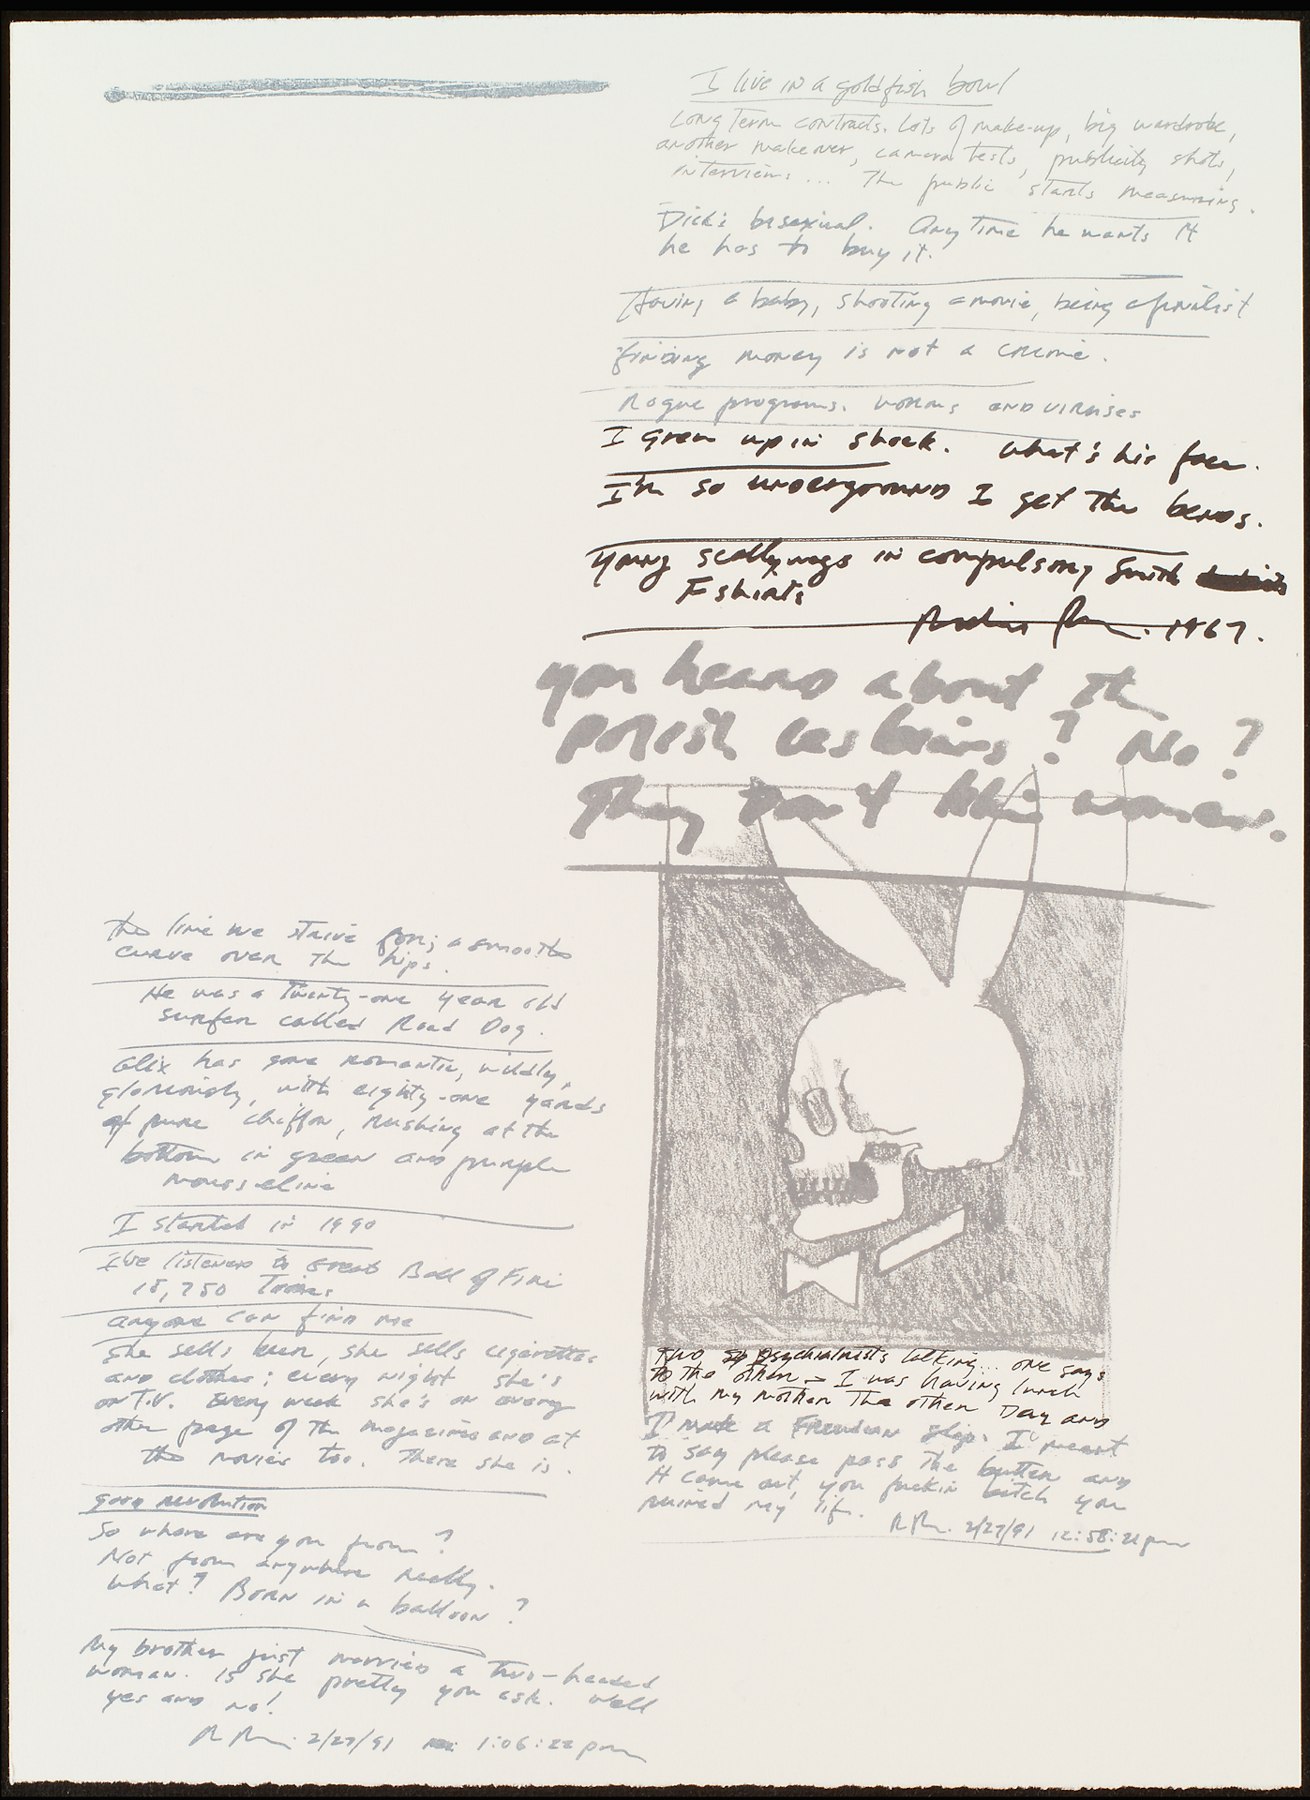 I live in a goldfish bowl
Long term contracts. Lots of make-up, big wardrobe,
another makeover, camera tests, publicity shots,
interviews... The public starts measuring.
Dick's bisexual. Anytime he wants it
he has to buy it.
Having a baby, shooting a movie, being a finalist
finding money is not a crime.
Rogue programs. Worms and viruises
I grew up in shock. What's his face.
I'm so underground I get the bends.
young scallywags in compulsory Smith
T shirts
1967.
you heard about the
polish lesbians? No?
They don't like women.
the line we strive for; a smooth
curve over the hips.
He was a twenty-one year old
surfer called Road Dog.
Alix has gone romantic, wildly,
gloriously, with eighty-one yards
of pure chiffon, rushing at the
bottom in green and purple
mousseline
I started in 1990
I've listened to Great Ball of Fire
15,750 Times
anyone can find me
She sells beer, she sells cigarettes
and clothes; every night she's
on T.V. Every week she's on every
other page of the magazines and at
the movies too. There she is.
good revolution
So where are you from?
Not from anywhere really.
What? Born in a balloon?
My brother just married a two-headed
woman. is she pretty you ask. Well
yes and no!
2/27/91 1:06:22pm
Two psychiatrists talking... one says
to the other - I was having lunch
with my mother the other Day and
I made a Freudian slip. I meant
to say please pass the butter and
it came out, you fuckin bitch you
ruined my life.
2/27/91 12:58:21pm